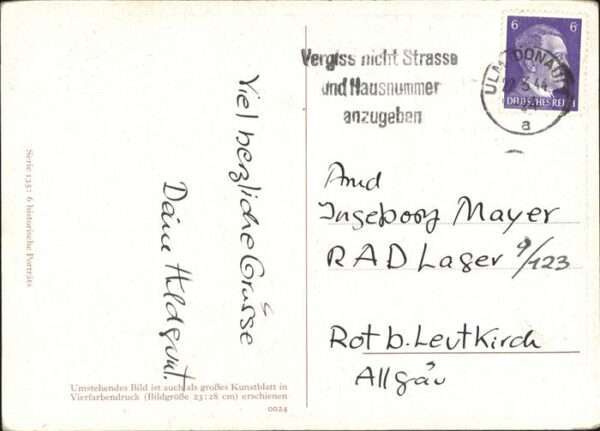 6 6
DEUTSCHES REICH
ULM (DONAU)
5.44
a
Vergiss nicht Strasse
und Hausnummer
anzugeben
Viel herzliche Grüsse
Deine Hildgunt.
Amd
Ingeborg Mayer
RAD Lager 9/123
Rot b. Leutkirch
Allgäu
Serie 135: 6 historische Porträts
Umstehendes Bild ist auch als großes Kunstblatt in
Vierfarbendruck (Bildgröße 23:28 cm) erschienen
0024